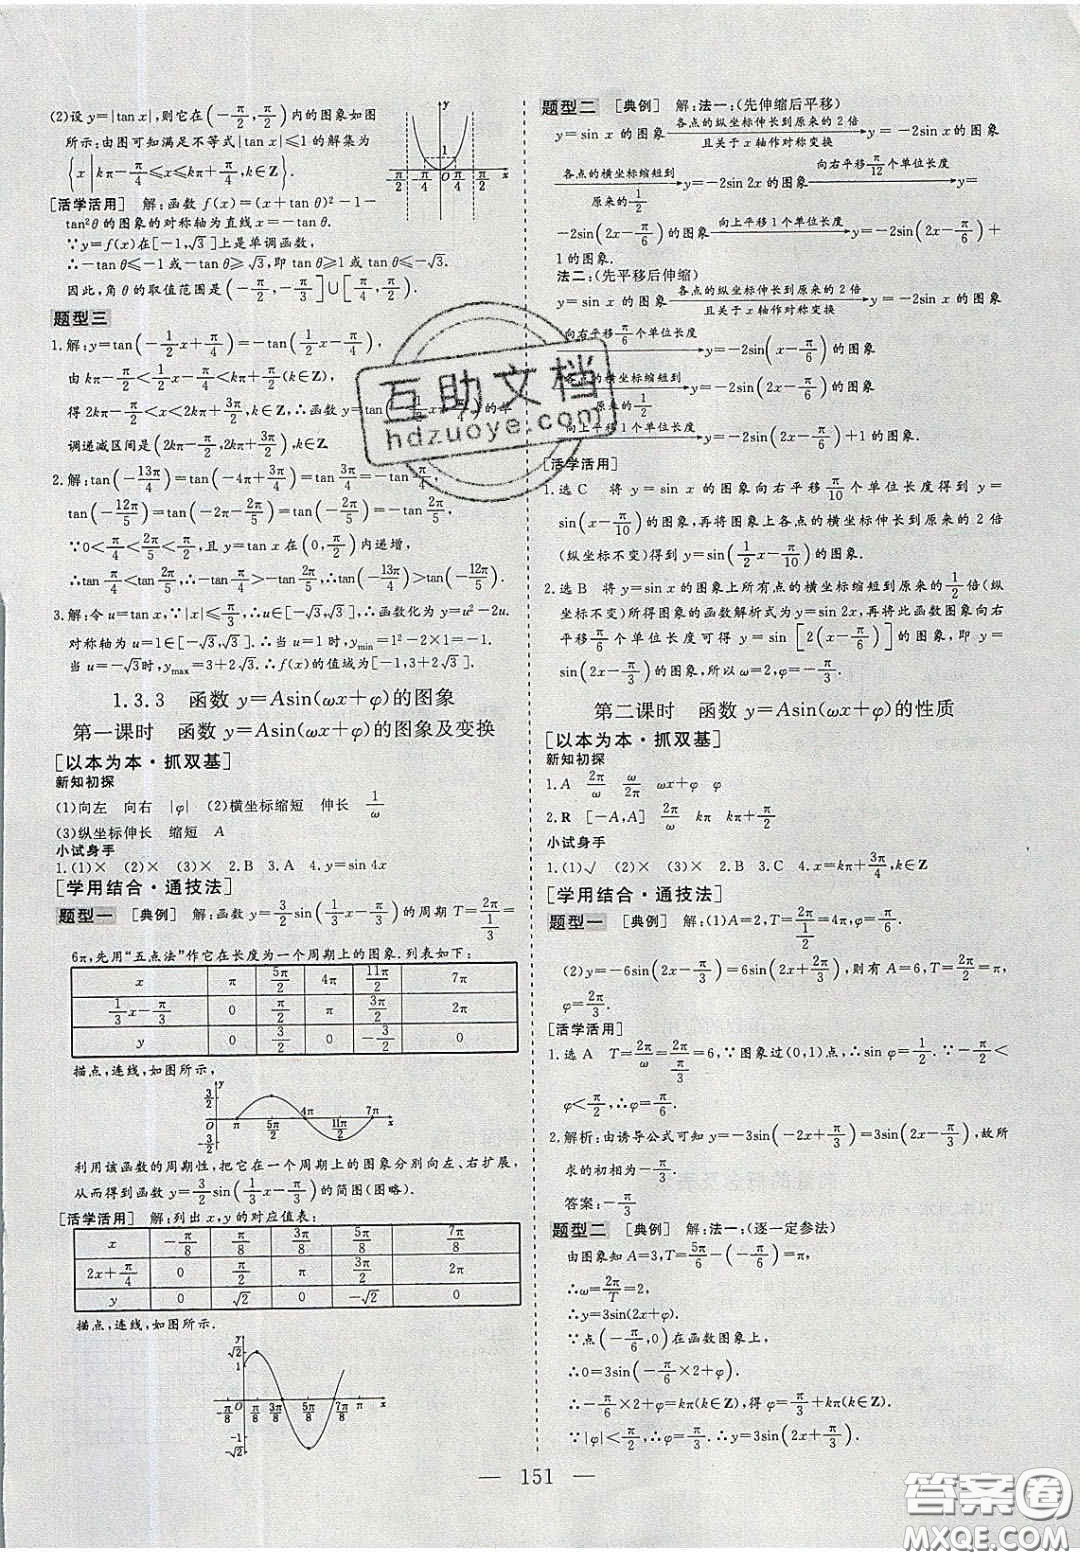 (2)设 y=|tan x|,则它在(-π/2,π/2)内的图象如图
所示:由图可知满足不等式|tan x|≤1 的解集为
{x|kπ-π/4≤x≤kπ+π/4,k∈Z}.
y
1
-π/2 -π/4 O π/4 π/2 x
[活学活用] 解:函数 f(x)=(x+tan θ)²-1-
tan²θ 的图象的对称轴为直线 x=-tan θ.
∵y=f(x)在[-1,√3]上是单调函数,
∴-tan θ≤-1 或-tan θ≥√3,即 tan θ≥1 或 tan θ≤-√3.
因此,角 θ 的取值范围是(-π/2,-π/3]∪[π/4,π/2).
题型三
1.解:y=tan(-1/2x+π/4)=-tan(1/2x-π/4),
由 kπ-π/2<1/2x-π/4<kπ+π/2(k∈Z),
得 2kπ-π/2<x<2kπ+3π/2,k∈Z,∴函数 y=tan(-1/2x+π/4)的单
调递减区间是(2kπ-π/2,2kπ+3π/2),k∈Z.
2.解:tan(-13π/4)=tan(-4π+3π/4)=tan 3π/4=-tan π/4,
tan(-12π/5)=tan(-2π-2π/5)=tan(-2π/5)=-tan 2π/5,
∵0<π/4<2π/5<π/2,且 y=tan x 在(0,π/2)内递增,
∴tan π/4<tan 2π/5,∴-tan π/4>-tan 2π/5,∴tan(-13π/4)>tan(-12π/5).
3.解:令 u=tan x,∵|x|≤π/3,∴u∈[-√3,√3],∴函数化为 y=u²-2u.
对称轴为 u=1∈[-√3,√3].∴当 u=1 时,ymin=1²-2×1=-1.
当 u=-√3时,ymax=3+2√3.∴f(x)的值域为[-1,3+2√3].
1.3.3 函数 y=Asin(ωx+φ)的图象
第一课时 函数 y=Asin(ωx+φ)的图象及变换
[以本为本·抓双基]
新知初探
(1)向左 向右 |φ| (2)横坐标缩短 伸长 1/ω
(3)纵坐标伸长 缩短 A
小试身手
1.(1)× (2)× (3)× 2.B 3.A 4.y=sin 4x
[学用结合·通技法]
题型一 [典例] 解:函数 y=3/2sin(1/3x-π/3)的周期 T=2π/(1/3)=
6π,先用“五点法”作它在长度为一个周期上的图象.列表如下:
x π 5π/2 4π 11π/2 7π
1/3x-π/3 0 π/2 π 3π/2 2π
y 0 3/2 0 -3/2 0
描点,连线,如图所示,
y
3/2
O π 5π/2 4π 11π/2 7π x
-3/2
利用该函数的周期性,把它在一个周期上的图象分别向左、右扩展,
从而得到函数 y=3/2sin(1/3x-π/3)的简图(图略).
[活学活用] 解:列出 x,y 的对应值表:
x -π/8 π/8 3π/8 5π/8 7π/8
2x+π/4 0 π/2 π 3π/2 2π
y 0 √2 0 -√2 0
描点,连线,如图所示.
y
√2
1
-π/8 O π/8 3π/8 5π/8 7π/8 x
-1
-√2
题型二 [典例] 解:法一:(先伸缩后平移)
y=sin x 的图象 各点的纵坐标伸长到原来的 2 倍 且关于 x 轴作对称变换 y=-2sin x 的图象
各点的横坐标缩短到 原来的1/2 y=-2sin 2x 的图象 向右平移π/12个单位长度 y=
-2sin(2x-π/6)的图象 向上平移 1 个单位长度 y=-2sin(2x-π/6)+
1 的图象.
法二:(先平移后伸缩)
y=sin x 的图象 各点的纵坐标伸长到原来的 2 倍 且关于 x 轴作对称变换 y=-2sin x 的图象
向右平移π/6个单位长度 y=-2sin(x-π/6)的图象
各点的横坐标缩短到 原来的1/2 y=-2sin(2x-π/6)的图象
向上平移 1 个单位长度 y=-2sin(2x-π/6)+1 的图象.
[活学活用]
1.选 C 将 y=sin x 的图象向右平移π/10个单位长度得到 y=
sin(x-π/10)的图象,再将图象上各点的横坐标伸长到原来的 2 倍
(纵坐标不变)得到 y=sin(1/2x-π/10)的图象.
2.选 B 将 y=sin x 的图象上所有点的横坐标缩短到原来的1/2倍(纵
坐标不变)所得图象的函数解析式为 y=sin 2x,再将此图象向右
平移π/6个单位长度可得 y=sin[2(x-π/6)]的图象,即 y=
sin(2x-π/3)的图象,所以 ω=2,φ=-π/3.
第二课时 函数 y=Asin(ωx+φ)的性质
[以本为本·抓双基]
新知初探
1.A 2π/ω ω/2π ωx+φ φ
2.R [-A,A] 2π/ω kπ kπ+π/2
小试身手
1.(1)√ (2)× (3)× 2.B 3.C 4.x=kπ+3π/4,k∈Z
[学用结合·通技法]
题型一 [典例] 解:(1)A=2,T=2π/(1/2)=4π,φ=π/6.
(2)y=-6sin(2x-π/3)=6sin(2x+2π/3),则有 A=6,T=2π/2=π,
φ=2π/3.
[活学活用]
1.选 A T=2π/ω=2π/(π/3)=6,∵图象过(0,1)点,∴sin φ=1/2.∵-π/2<
φ<π/2,∴φ=π/6.
2.解析:由诱导公式可知 y=-3sin(-2x+π/3)=3sin(2x-π/3),故所
求的初相为-π/3.
答案:-π/3
题型二 [典例] 解:法一:(逐一定参法)
由图象知 A=3,T=5π/6-(-π/6)=π,
∴ω=2π/T=2,
∴y=3sin(2x+φ).
∵点(-π/6,0)在函数图象上,
∴0=3sin(-π/6×2+φ).
∴-π/6×2+φ=kπ(k∈Z),得 φ=π/3+kπ(k∈Z).
∵|φ|<π/2,∴φ=π/3.∴y=3sin(2x+π/3).
— 151 —
互助文档
hdzuoye.com
答案圈
MXQE.COM